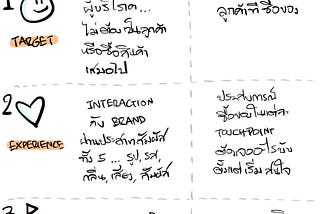 1
TARGET
ผู้บริโภค...
ไม่ต้องเป็นลูกค้า
หรือซื้อสินค้า
เหมอไป
ลูกค้าที่ซื้อของ
2
EXPERIENCE
INTERACTION
กับ BRAND
ผ่านประสาทสัมผัส
ทั้ง 5 ... รูป, รส,
กลิ่น, เสียง, สัมผัส
ประสบการณ์
ซื้อของในแต่ละ
TOUCHPOINT
ต้องเจออะไรบ้าง
ตั้งแต่เริ่มสนใจ
3